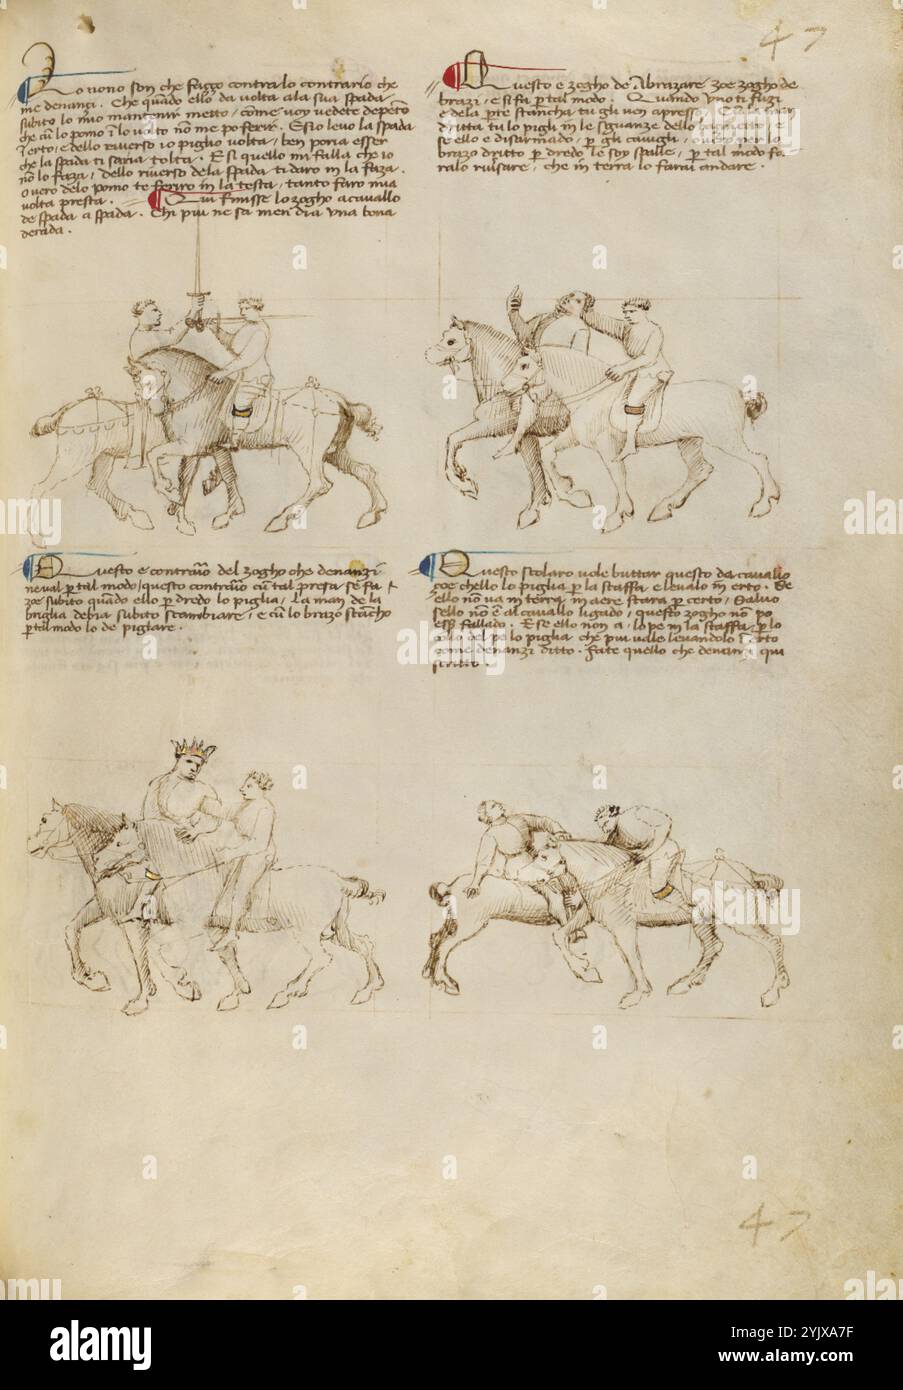 47
Io vono son che faço contra lo contrario che
me denançi. Che quãdo ello da volta a la sua spada
subito lo mio mantenir metto, come voy vedete depento
che cũ lo pomo ĩ lo volto nõ me po ferir. E s'io levo la spada
ĩ erto, e dello riverso io piglio volta, ben poria esser
che la spada ti saria tolta. E si quello mi falla che io
nõ lo faza, dello riverso dela spada ti daro in la faza.
Overo delo pomo te feriro in la testa, tanto faro mia
volta presta. Qui finisse lo zogho a cavallo
de spada a spada. Chi piu ne sa men dia una bona
derada.
Questo e zogho de Abrazare zoe zogho de
brazi, e si fa p tal modo. Quando uno ti fuzi
e dela pte stancha tu gli voy apresso. Cũ la man
dritta tu lo pigli in le sguanze dello bacinetto, e
se ello e disarmado, p gli cavigli, overo per lo
brazo dritto p dredo le soy spalle, p tal modo fa-
ralo riversare, che in terra lo farai andare.
Questo e contrario del zogho che denanzi
ne va p tal modo, questo contrario cũ tal presa se fa
zoe subito quãdo ello p dredo lo piglia, la man de la
briglia debia subito scambiare, e cũ lo brazo stãcho
p tal modo lo de pigliare.
Questo scolaro vole buttar questo da cavallo
zoe chello lo piglia p la staffa e levalo in erto. Se
ello nõ va in terra, in aere stara p certo, Salvo
sello nõ e al cavallo ligado, questo zogho nõ po
esser fallado. E se ello non a lo pe in la staffa, p lo
collo del pe lo piglia che piu vale levandolo ĩ erto
come denanzi ditto. Fate quello che denanzi qui
scritto.
47
alamy
Image ID: 2YJXA7F
www.alamy.com